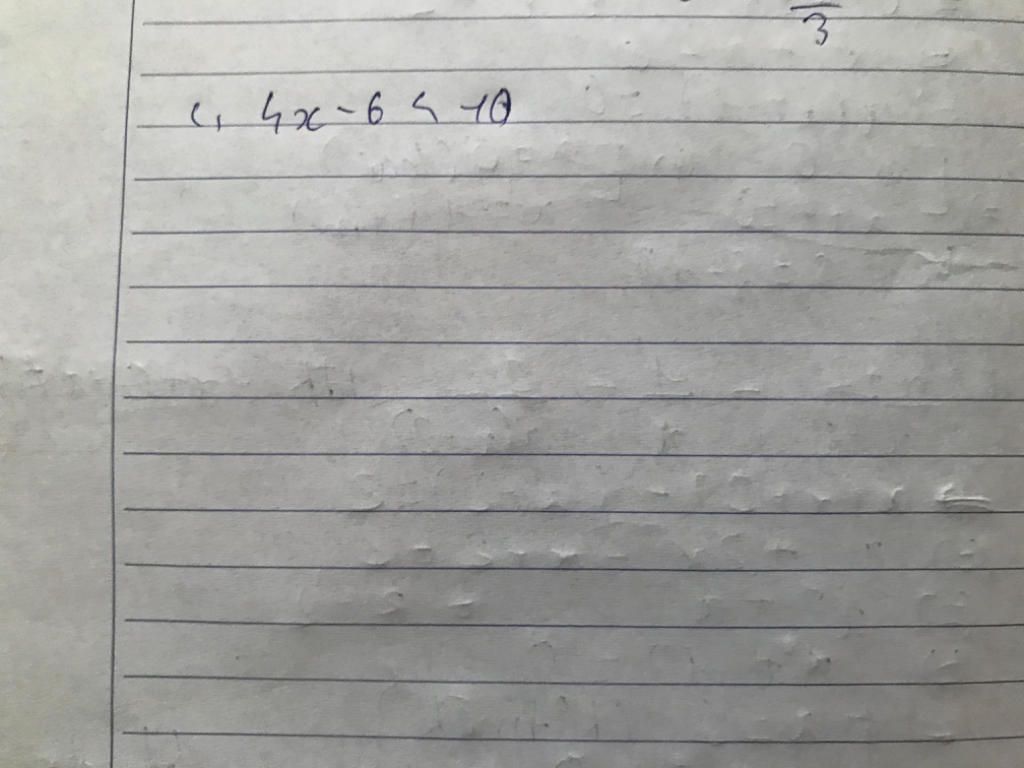 3
c, 4x - 6 < -10